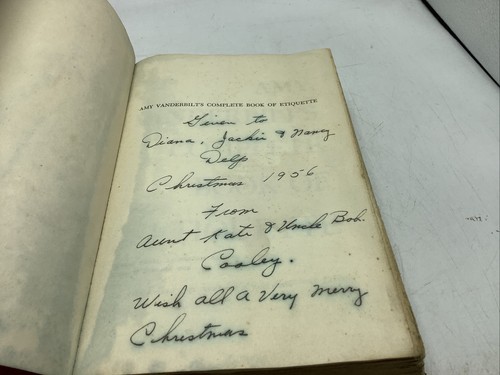 AMY VANDERBILT'S COMPLETE BOOK OF ETIQUETTE
Given to
Diana, Jackie & Nancy
Delp
Christmas 1956
From
Aunt Kate & Uncle Bob.
Cooley.
Wish all a Very Merry
Christmas